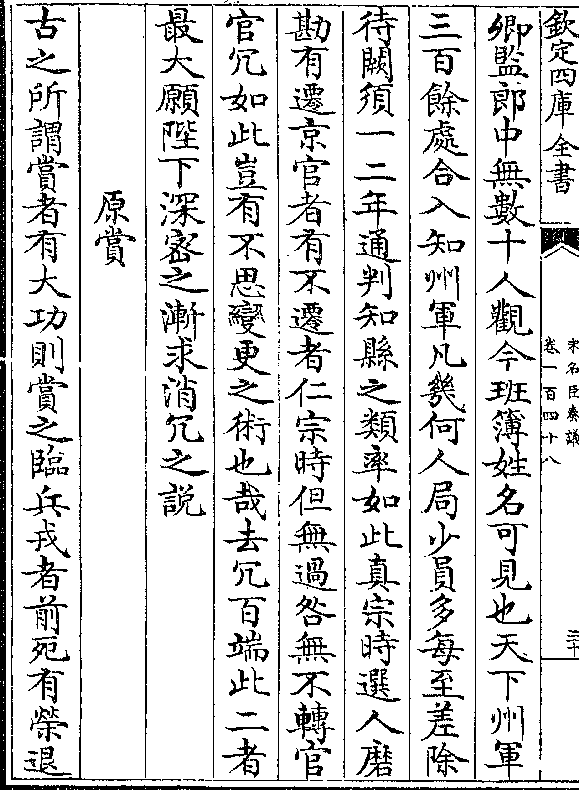 欽定四庫全書
宋名臣奏議
卷一百四十八
三十
卿監郎中無數十人觀今班簿姓名可見也天下州軍
三百餘處合入知州軍凡幾何人局少員多每至差除
待闕須一二年通判知縣之類率如此真宗時選人磨
勘有遷京官者有不遷者仁宗時但無過咎無不轉官
官冗如此豈有不思變更之術也哉去冗百端此二者
最大願陛下深密之漸求消冗之説
原賞
古之所謂賞者有大功則賞之臨兵戎者前死有榮退